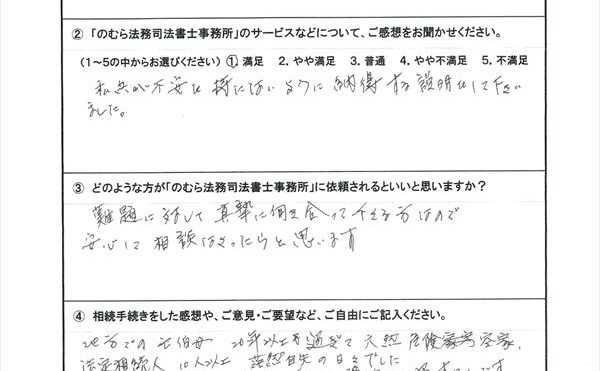 ② 「のむら法務司法書士事務所」のサービスなどについて、ご感想をお聞かせください。
（1～5の中からお選びください） ①. 満足 2. やや満足 3. 普通 4. やや不満足 5. 不満足
私共が不安を持たないように納得する説明をして下さい
ました。
③ どのような方が「のむら法務司法書士事務所」に依頼されるといいと思いますか？
難題に対して真摯に向き合って下さる方なので
安心して相談なさったらと思います
④ 相続手続きをした感想や、ご意見・ご要望など、ご自由にご記入ください。
20年以上も過ぎて
法定相続人 10人以上 茫然自失の日々でした